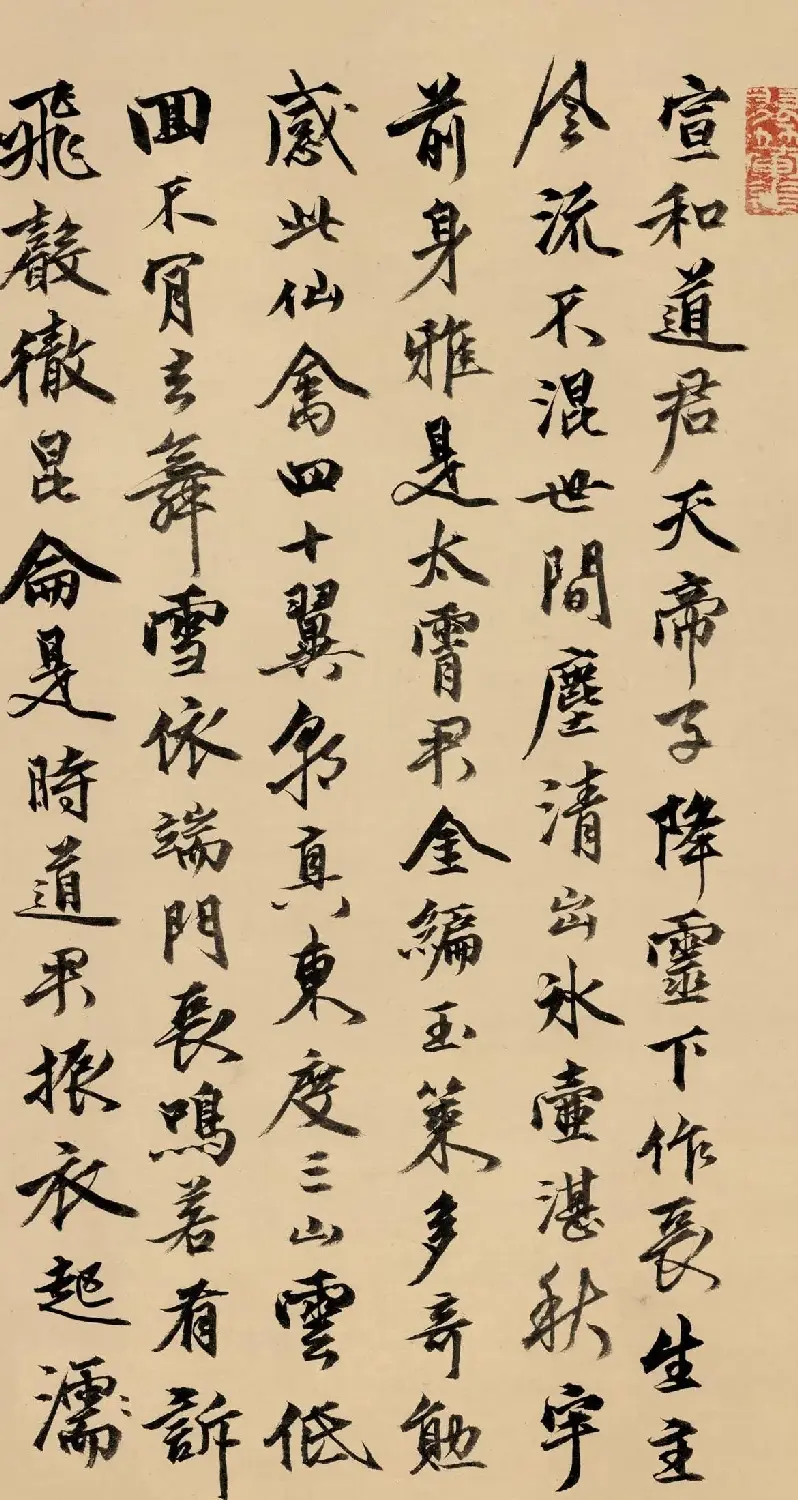 宣和道君天帝子降靈下作長生主
風流不混世間塵清出冰壺湛秋宇
前身雅是太霄君金編玉策多奇勛
感此仙禽四十翼朝真東度三山雲低
回不肯去舞雪依端門長鳴若有訴
飛聲徹昆侖是時道君振衣起濡